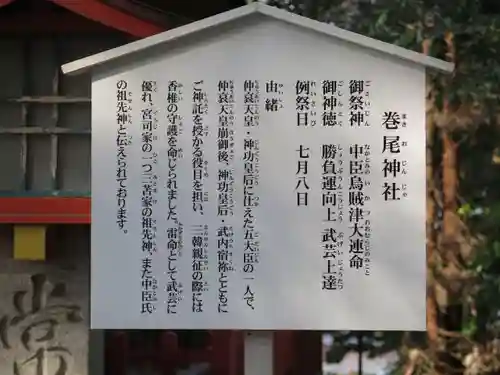 巻尾神社
御祭神 中臣烏賊津大連命
御神徳 勝負運向上 武芸上達
例祭日 七月八日
由緒
仲哀天皇・神功皇后に仕えた五大臣の一人で、
仲哀天皇崩御後、神功皇后・武内宿祢とともに
ご神託を授かる役目を担い、三韓親征の際には
香椎の守護を命じられました。雷命として武芸に
優れ、宮司家の一つ三苫家の祖先神、また中臣氏
の祖先神と伝えられております。